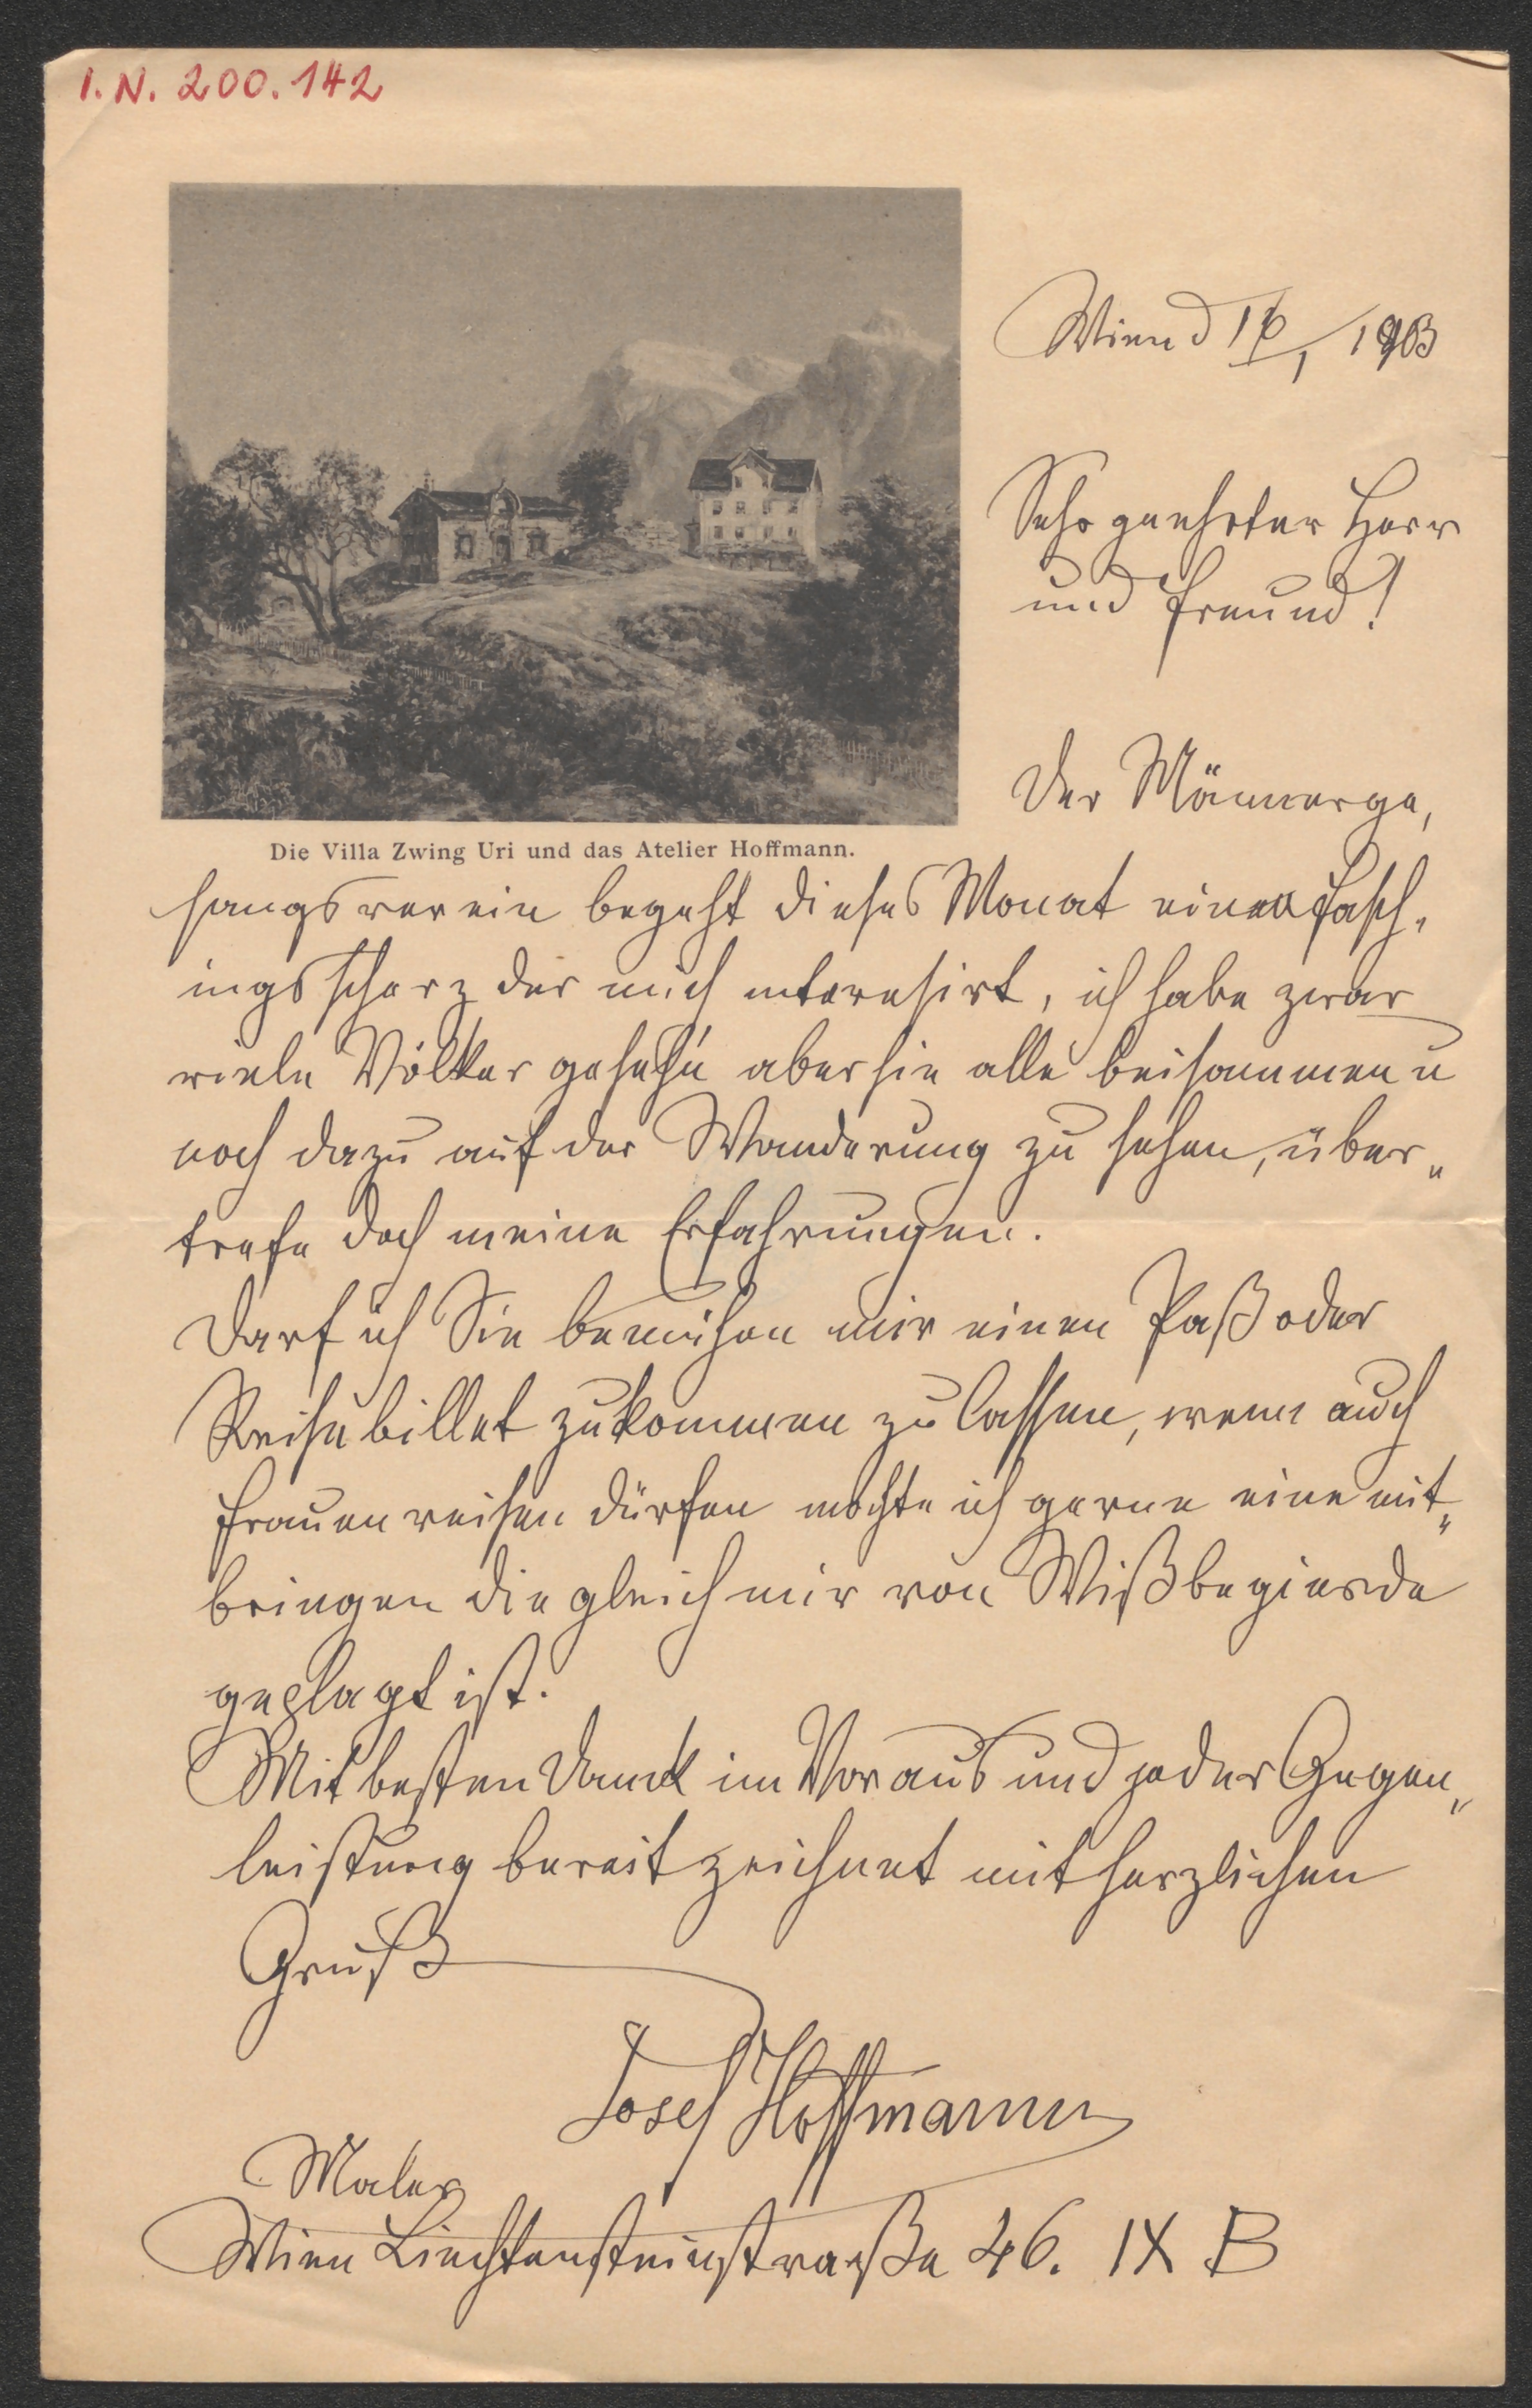 I. N. 200.142
Wien d 16/1 1903
Sehr geehrter Herr
und Freund!
Der Männerge,
Die Villa Zwing Uri und das Atelier Hoffmann.
sangsverein begeht dieses Monat einen Fasch,
ingsscherz der mich interesirt, ich habe zwar
viele Völker geseh'n aber sie alle beisammen u
noch dazu auf der Wanderung zu sehen, über„
trefe doch meine Erfahrungen.
Darf ich Sie bemühen mir einen Paß oder
Reisebillet zukommen zu lassen, wenn auch
Frauen reisen dürfen möchte ich gerne eine mit„
bringen die gleich mir von Wißbegierde
geplagt ist.
Mit besten Dank im Voraus und jeder Gegen„
leistung bereit zeichnet mit herzlichen
Gruß
Josef Hoffmann
Maler
Wien Liechtensteinstraße 46. IX B